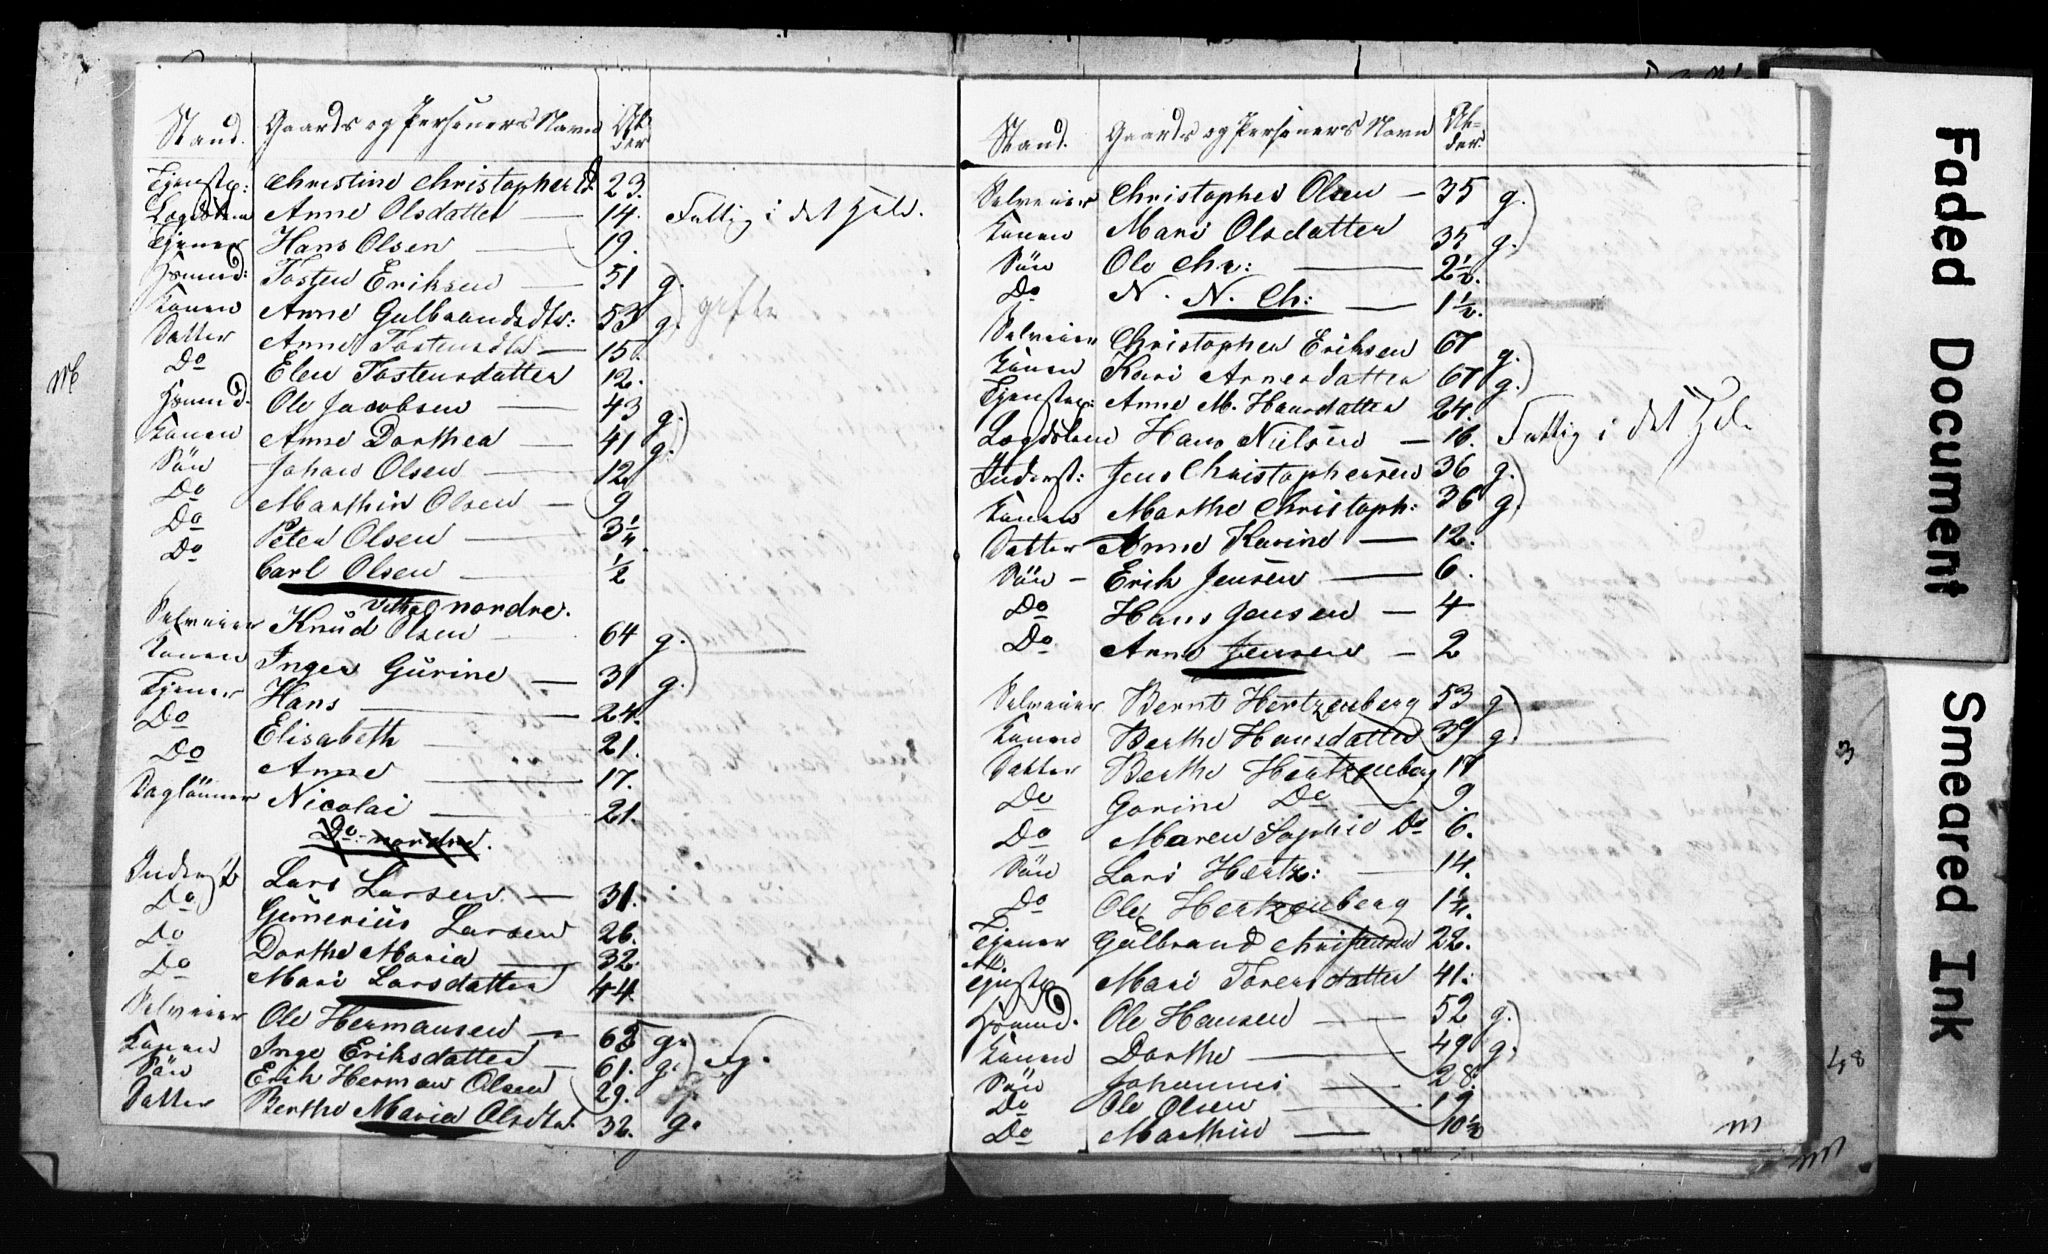 Stand. Gaards og Personers Navn Al- der
Tjenstp: Christine Christophersd. 23.
Lægdslem Anne Olsdatter — 14. Fattig i det hele.
Tjener Hans Olsen — 19.
Huusmd: Tosten Eriksen — 51 g.
Konen Anne Gulbrandsdtr: 53 g. gifte
Datter Anne Tostensdtr — 15
Do Elen Tostensdatter 12.
Huusmd. Ole Jacobsen — 43 g.
Konen Anne Dorthea — 41 g.
Søn Johan Olsen — 12
Do Marthin Olsen — 9
Do Peter Olsen — 3 1/4
Do Carl Olsen — 1/2
nordre.
Selveier Knud Olsen — 64 g.
Konen Inger Gurine — 31 g.
Tjener Hans — 24.
Do Elisabeth — 21.
Do Anne — 17.
Daglönner Nicolai — 21.
Do nordre.
Inderst Lars Larsen — 31.
Do Gunerius Larsen 26.
Do Dorthe Maria — 32.
Do Mari Larsdatter 44.
Selveier Ole Hermansen — 63 g.
Konen Inge Eriksdatter — 61. g.
Søn Erik Herman Olsen 29.
Datter Berthe Maria Olsdtr. 32. g.
Stand. Gaards og Personers Navn Al- der.
Selveier Christopher Olsen — 35 g.
Konen Mari Olsdatter 35 g.
Søn Ole Chr: — 2 1/2.
Do N. N. Ch: — 1 1/2.
Selveier Christopher Eriksen 67 g.
Konen Kari Arnesdatter 67 g.
Tjenstp: Anne M. Hansdatter 24.
Lægdslem Hans Nielsen — 16. Fattig i det hele
Inderst: Jens Christophersen 36 g.
Konen Marthe Christoph: 36 g.
Datter Anne Karine — 12.
Søn — Erik Jensen — 6.
Do Hans Jensen — 4
Do Anne Jensen — 2
Selveier Bernt Hertzenberg 53 g.
Konen Berthe Hansdatter 39 g.
Datter Berthe Hertzenberg 17
Do Gorine Do — 9.
Do Maren Sophie Do 6.
Søn Lars Hertz: — 14.
Do Ole Hertzenberg 1 1/4.
Tjener Gulbrand Christensen 22.
Tjenstp Mari Torersdatter 41.
Huusmd. Ole Hansen — 52 g.
Konen Dorthe — 49 g.
Søn Johannes — 28.
Do Ole Olsen — 19.
Do Marthin — 10 1/2
3
48
Faded Document
Smeared Ink